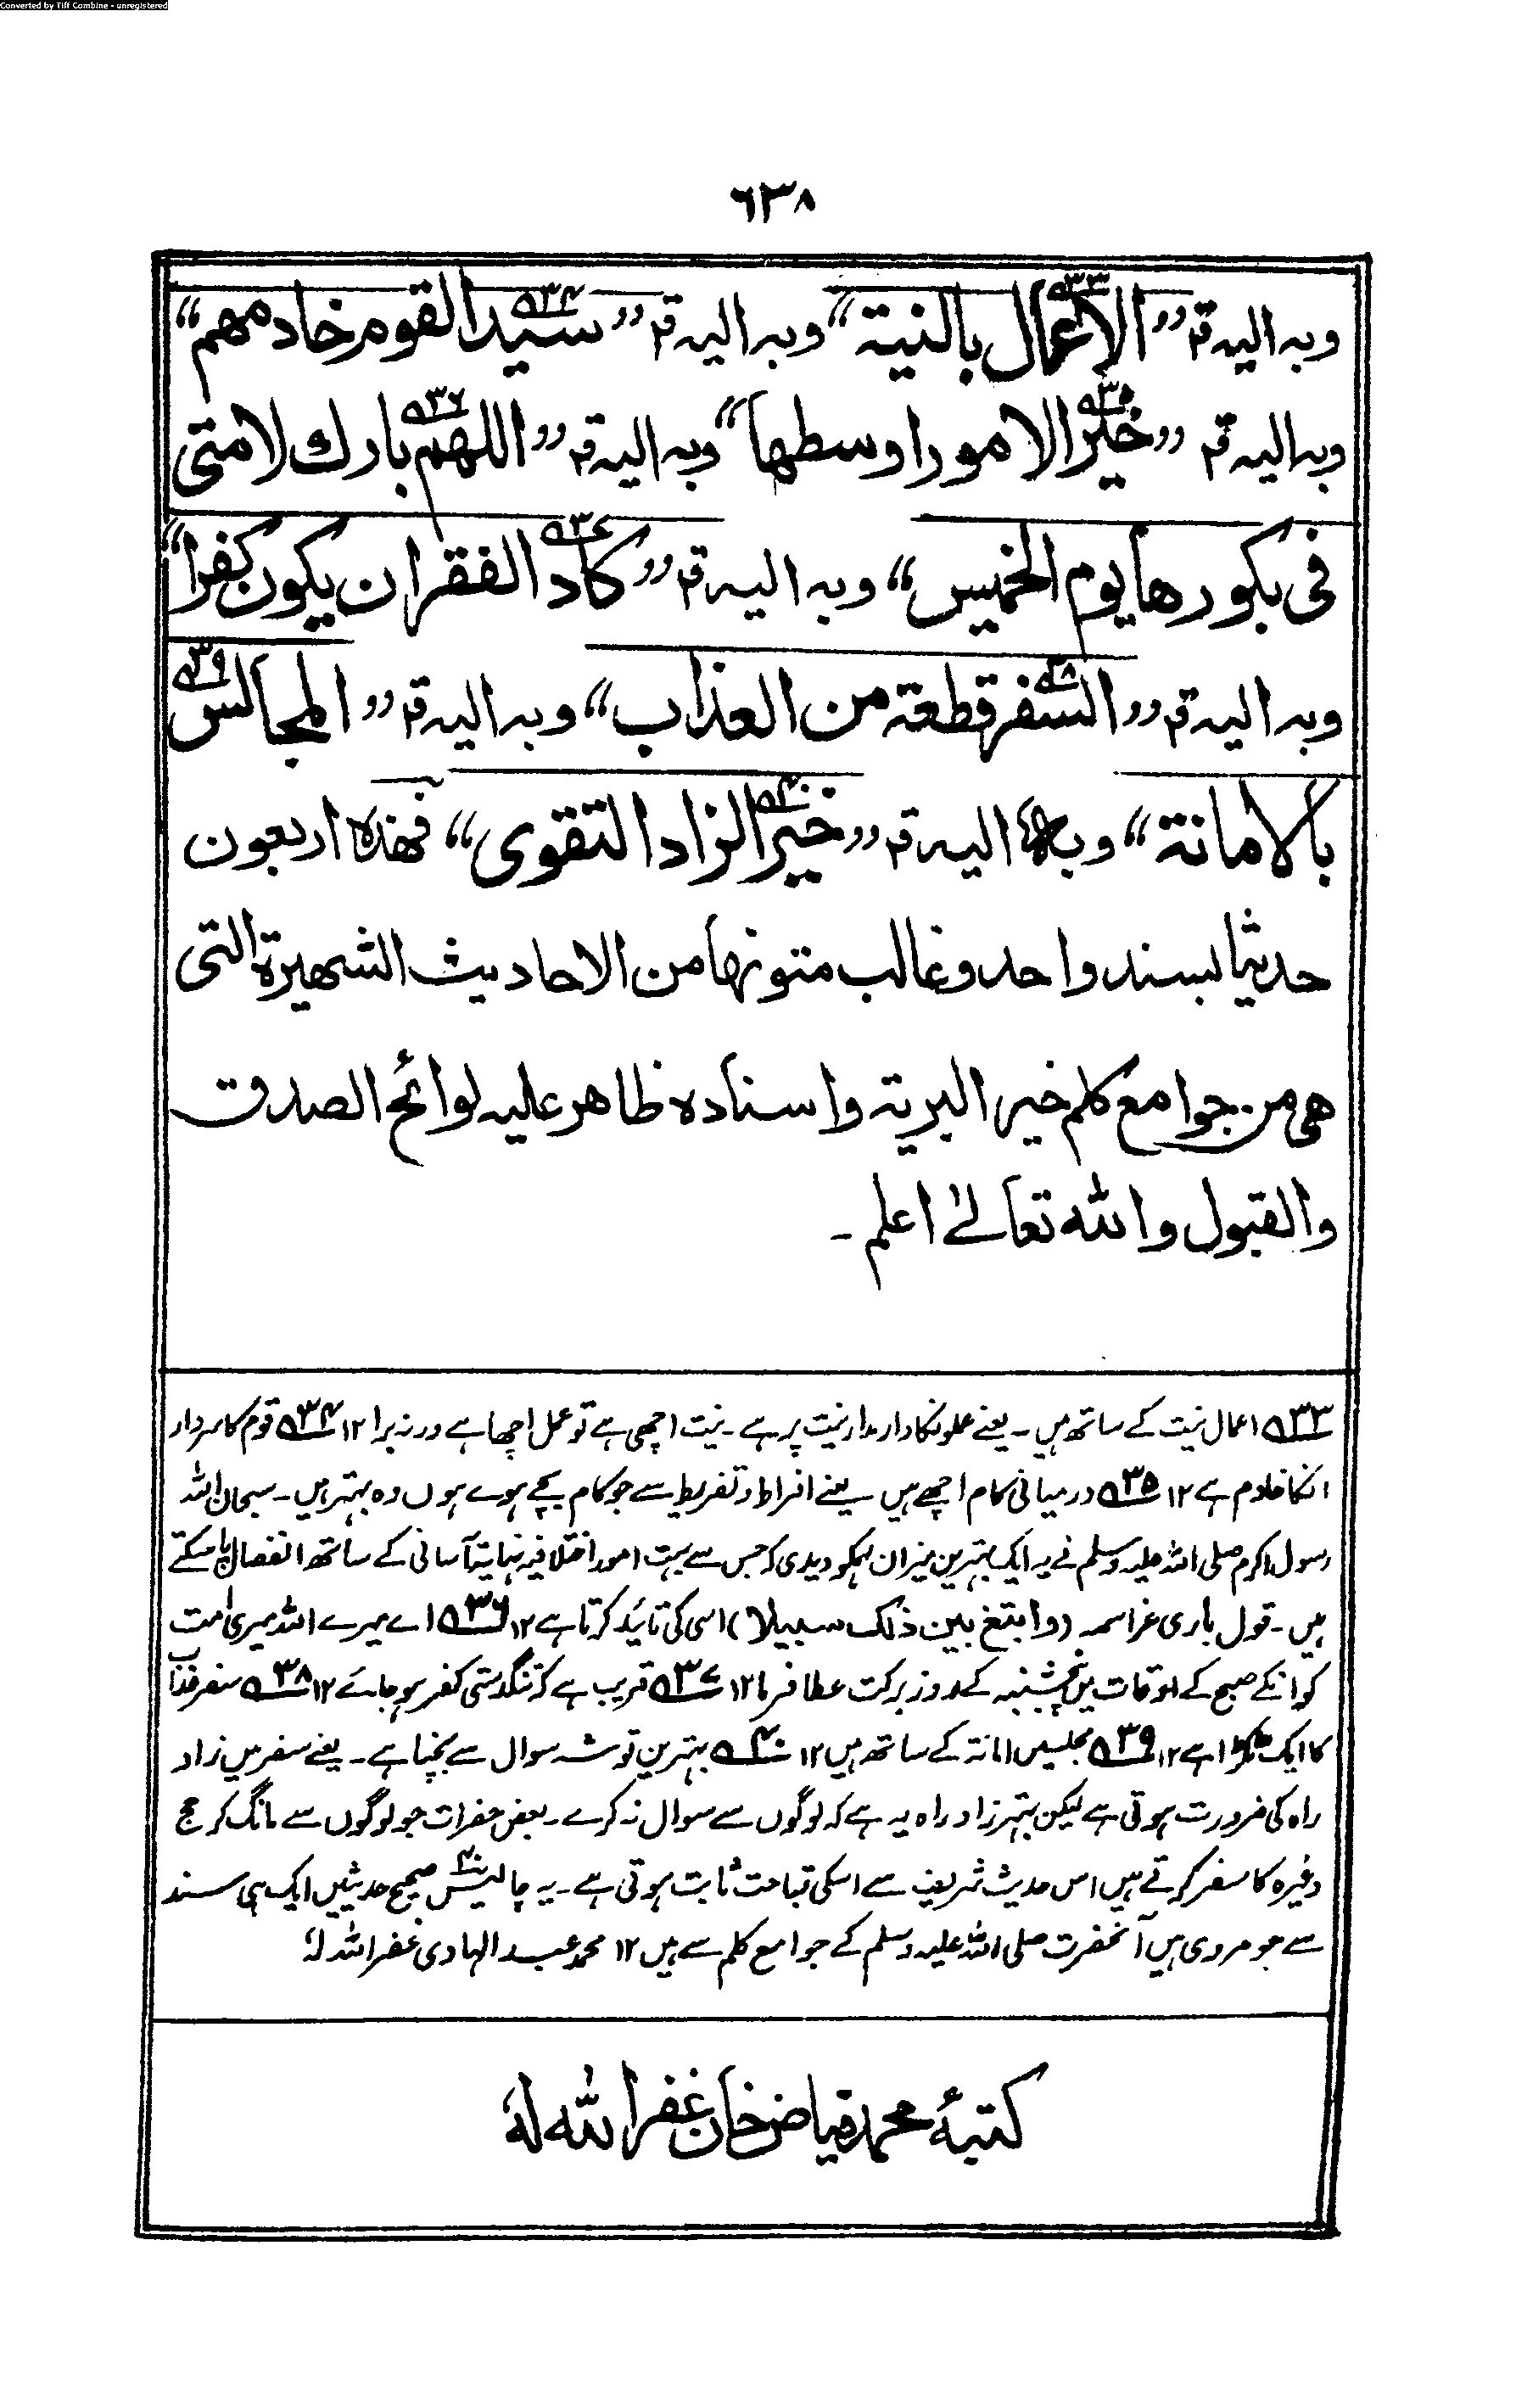 Converted by Tiff Combine - unregistered
٦٣٨
وبہ الیہ قہ ”الاعمال بالنیۃ“ وبہ الیہ قہ ”سید القوم خادمھم“
وبہ الیہ قہ ”خیر الامور اوسطھا“ وبہ الیہ قہ ”اللھم بارك لامتی
فی بکورھا یوم الخمیس“ وبہ الیہ قہ ”کاد الفقران یکون کفرا“
وبہ الیہ قہ ”السفر قطعۃ من العذاب“ وبہ الیہ قہ ”المجالس
بالامانۃ“ وبہ الیہ قہ ”خیر الزاد التقوی“ فھذہ اربعون
حدیثا بسند واحد وغالب متونھا من الاحادیث الشھیرۃ التی
ھی من جوامع کلم خیر البریۃ واسنادہ ظاھر علیہ لوائح الصدق
والقبول واللہ تعالیٰ اعلم ۔
۵۳۳ اعمال نیت کے ساتھ ہیں ۔ یعنے عملونکا دار مدار نیت پر ہے ۔ نیت اچھی ہے تو عمل اچھا ہے ورنہ برا ۱۲ ۵۳۴ قوم کا سردار
انکا خادم ہے ۱۲ ۵۳۵ درمیانی کام اچھے ہیں یعنے افراط و تفریط سے جو کام بچے ہوے ہوں وہ بہتر ہیں ۔ سبحان اللہ
رسول اکرم صلی اللہ علیہ وسلم نے یہ ایک بہترین میزان ہمکو دیدی کہ جس سے بہت امور اختلافیہ نہایت آسانی کے ساتھ انفصال پا سکتے
ہیں ۔ قول باری عز اسمہ (وابتغ بین ذلک سبیلا) اسی کی تائید کرتا ہے ۱۲ ۵۳۶ اے میرے اللہ میری امت
کو انکے صبح کے اوقات میں پنچشنبہ کے روز برکت عطا فرما ۱۲ ۵۳۷ قریب ہے کہ تنگدستی کفر ہو جائے ۱۲ ۵۳۸ سفر عذاب
کا ایک ٹکڑا ہے ۱۲ ۵۳۹ مجلسیں امانۃ کے ساتھ ہیں ۱۲ ۵۴۰ بہترین توشہ سوال سے بچنا ہے ۔ یعنے سفر میں زاد
راہ کی ضرورت ہوتی ہے لیکن بہتر زاد راہ یہ ہے کہ لوگوں سے سوال نہ کرے ۔ بعض حضرات جو لوگوں سے مانگ کر حج
وغیرہ کا سفر کرتے ہیں اس حدیث شریف سے اسکی قباحت ثابت ہوتی ہے ۔ یہ چالیس ۴۰ صحیح حدیثیں ایک ہی سند
سے جو مروی ہیں آنحضرت صلی اللہ علیہ وسلم کے جوامع کلم سے ہیں ۱۲ محمد عبد الہادی غفر اللہ لہٗ
کتبہٗ محمد فیاض خان غفر اللہ لہٗ